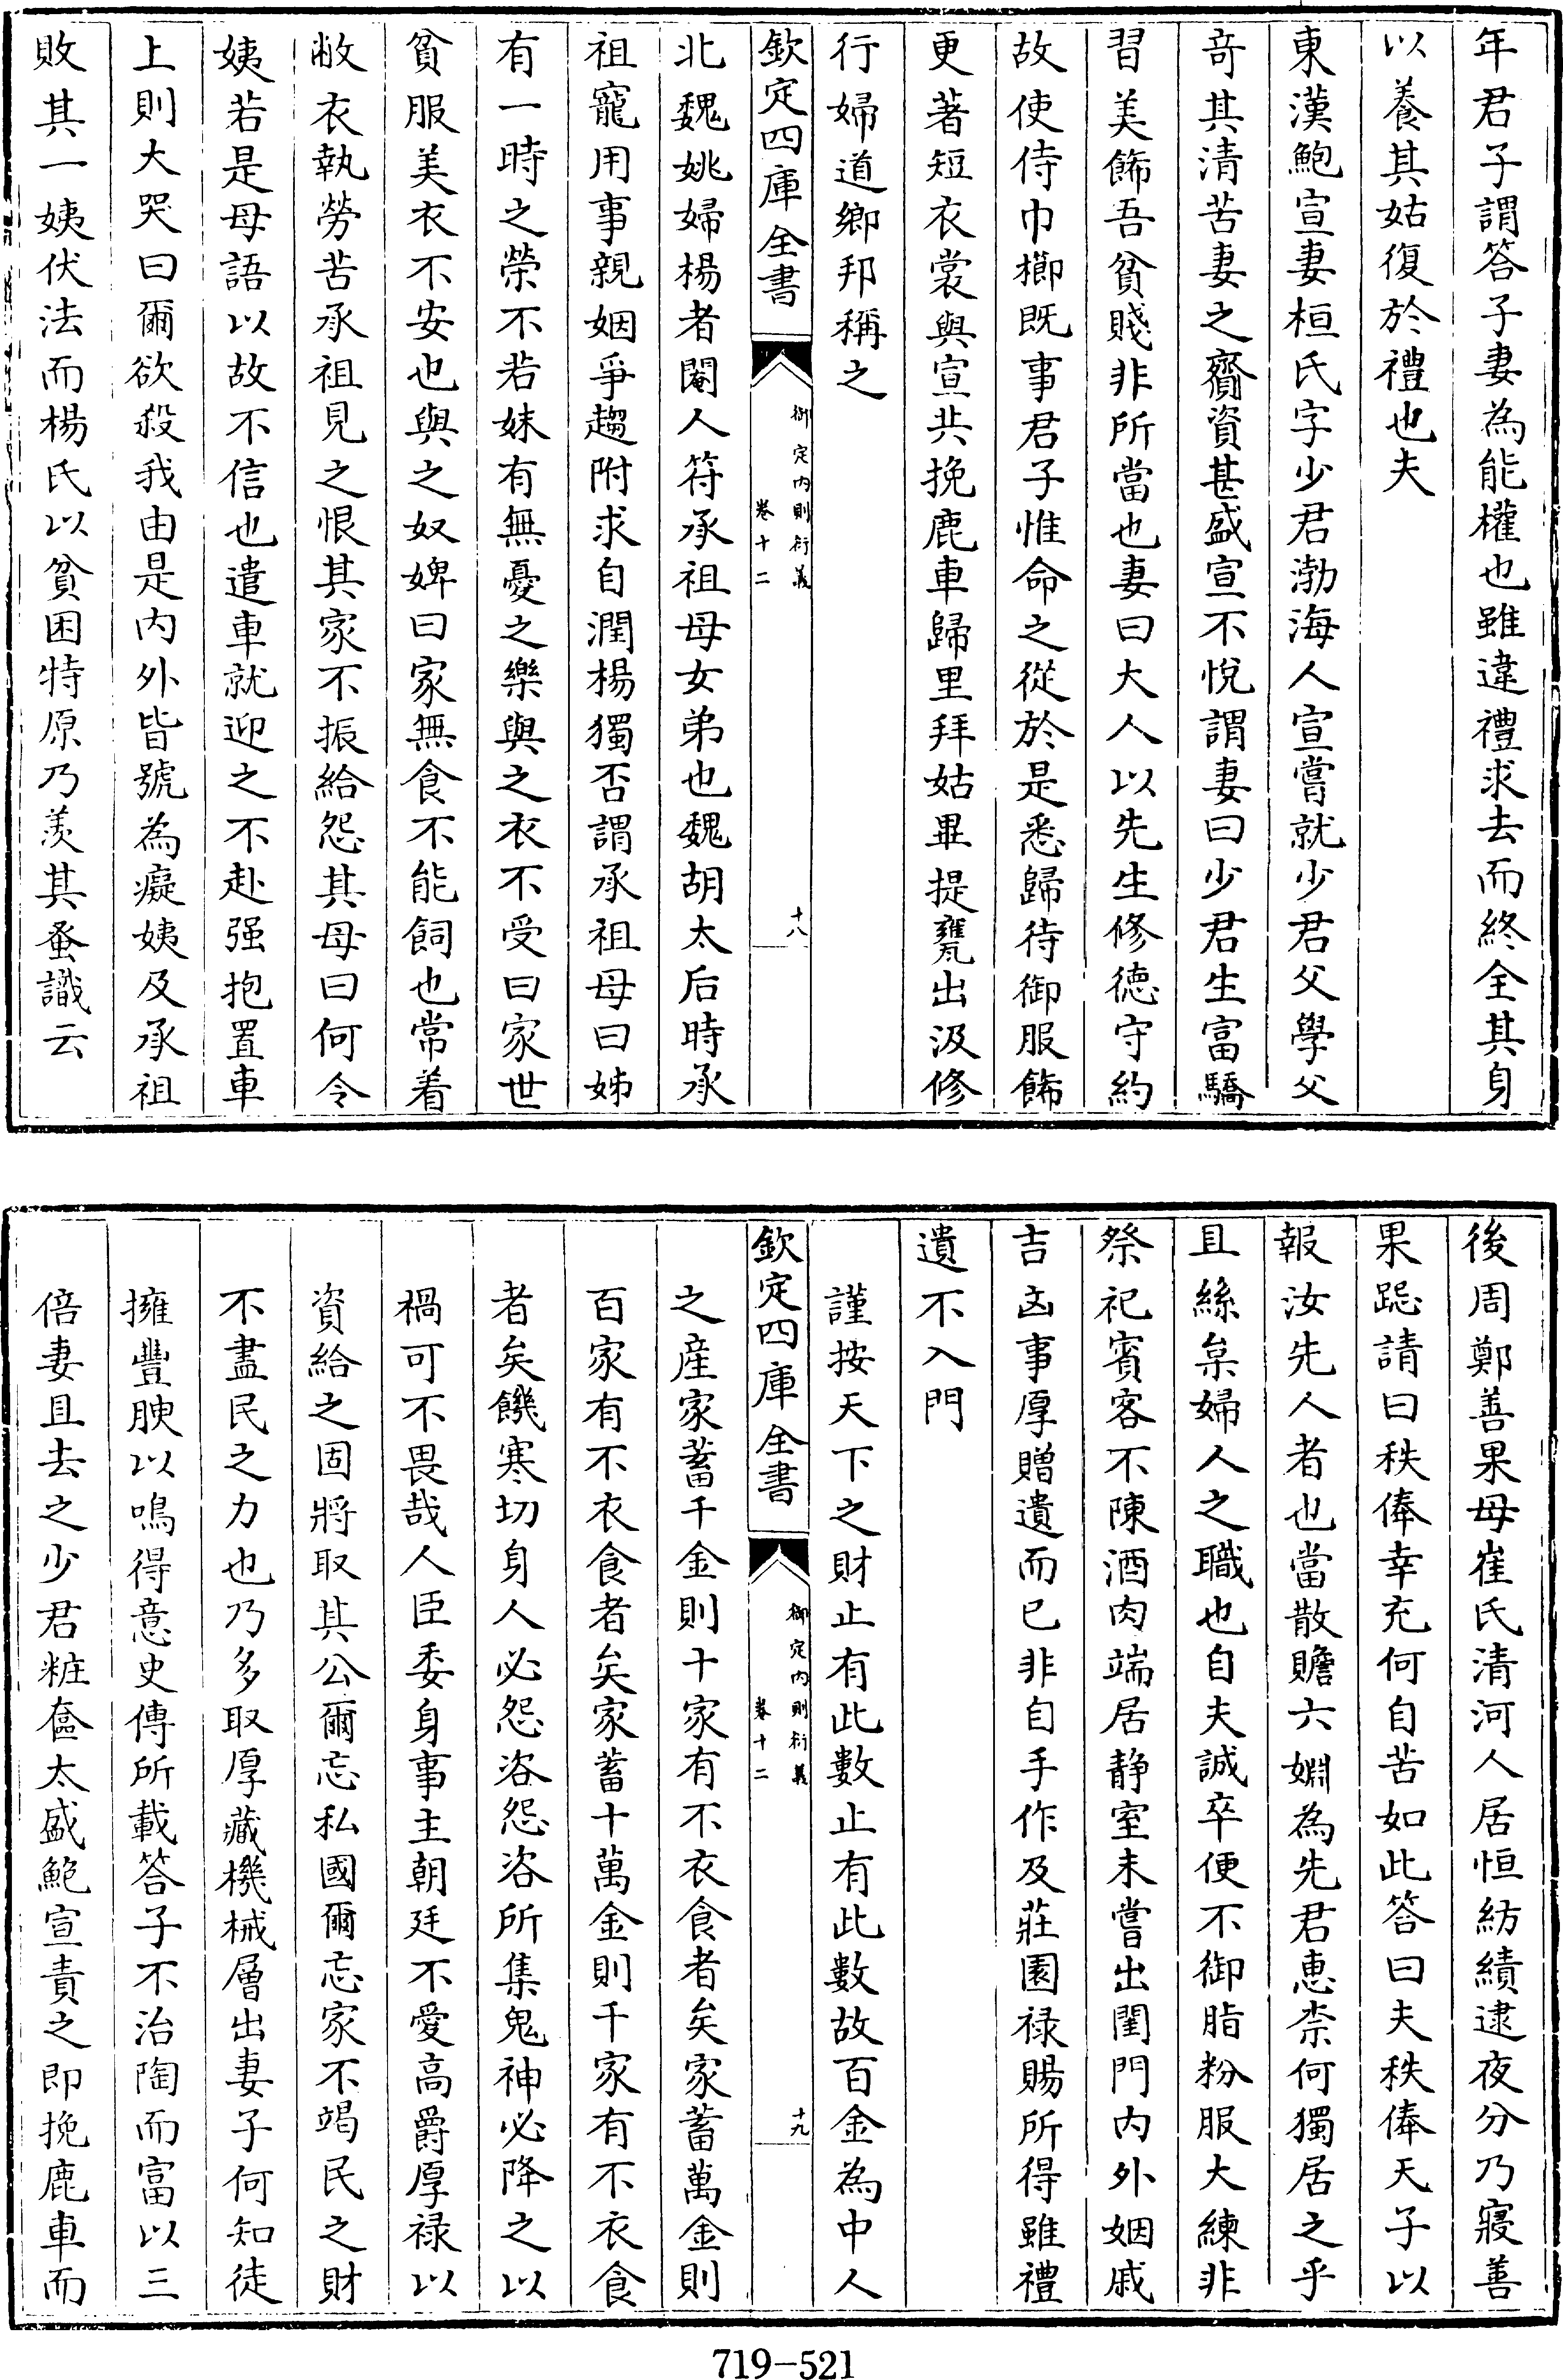 年君子謂答子妻為能權也雖違禮求去而終全其身
以養其姑復於禮也夫
東漢鮑宣妻桓氏字少君渤海人宣嘗就少君父學父
奇其清苦妻之齎資甚盛宣不悅謂妻曰少君生富驕
習美飾吾貧賤非所當也妻曰大人以先生修德守約
故使侍巾櫛既事君子惟命之從於是悉歸待御服飾
更著短衣裳與宣共挽鹿車歸里拜姑畢提甕出汲修
行婦道鄉邦稱之
欽定四庫全書
御定內則衍義
卷十二
十八
北魏姚婦楊者閹人符承祖母女弟也魏胡太后時承
祖寵用事親姻爭趨附求自潤楊獨否謂承祖母曰姊
有一時之榮不若妹有無憂之樂與之衣不受曰家世
貧服美衣不安也與之奴婢曰家無食不能飼也常着
敝衣執勞苦承祖見之恨其家不振給怨其母曰何令
姨若是母語以故不信也遣車就迎之不赴强抱置車
上則大哭曰爾欲殺我由是内外皆號為癡姨及承祖
敗其一姨伏法而楊氏以貧困特原乃羨其蚤識云
後周鄭善果母崔氏清河人居恒紡績逮夜分乃寢善
果跽請曰秩俸幸充何自苦如此答曰夫秩俸天子以
報汝先人者也當散贍六婣為先君惠柰何獨居之乎
且絲枲婦人之職也自夫誠卒便不御脂粉服大練非
祭祀賓客不陳酒肉端居静室未嘗出閨門内外姻戚
吉凶事厚贈遺而已非自手作及莊園禄賜所得雖禮
遺不入門
謹按天下之財止有此數止有此數故百金為中人
欽定四庫全書
御定內則衍義
卷十二
十九
之産家蓄千金則十家有不衣食者矣家蓄萬金則
百家有不衣食者矣家蓄十萬金則千家有不衣食
者矣饑寒切身人必怨咨怨咨所集鬼神必降之以
禍可不畏哉人臣委身事主朝廷不愛高爵厚禄以
資給之固將取其公爾忘私國爾忘家不竭民之財
不盡民之力也乃多取厚藏機械層出妻子何知徒
擁豐腴以鳴得意史傳所載答子不治陶而富以三
倍妻且去之少君粧奩太盛鮑宣責之即挽鹿車而
719-521